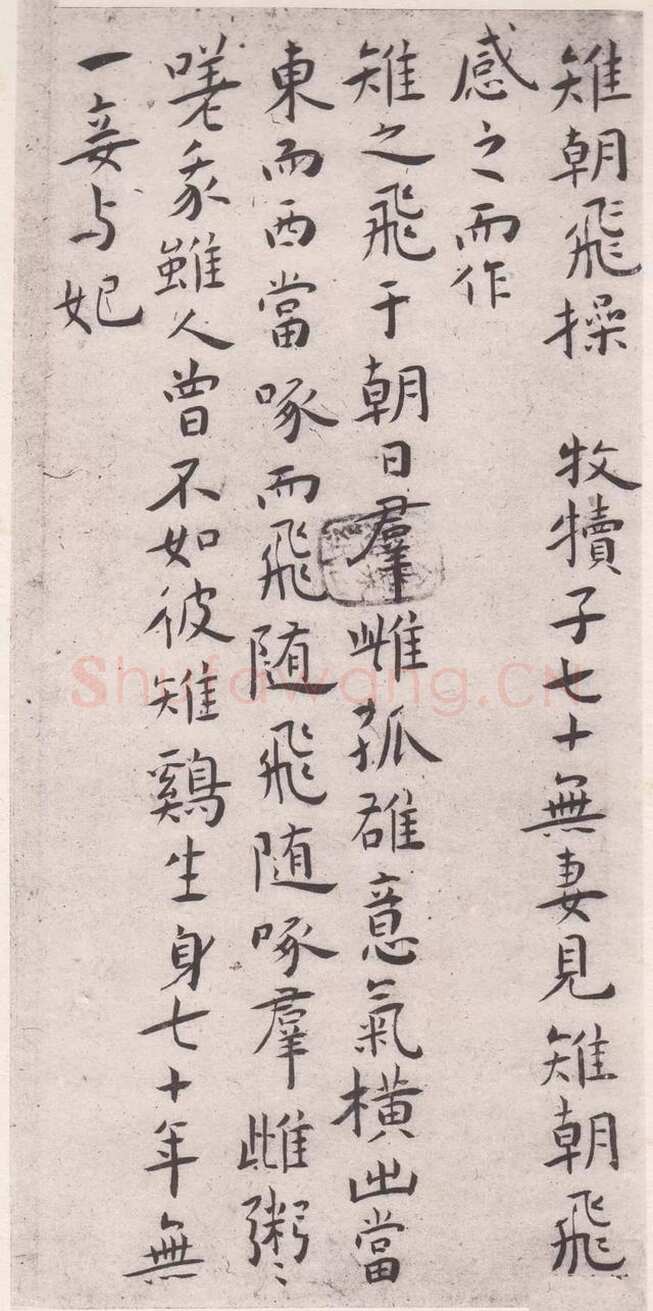 雉朝飛操 牧犢子七十無妻見雉朝飛
感之而作
雉之飛于朝日羣雌孤雄意氣橫出當
東而西當啄而飛随飛随啄羣雌粥〻
嗟我雖人曾不如彼雉鷄生身七十年無
一妾与妃
Shufawang.CN